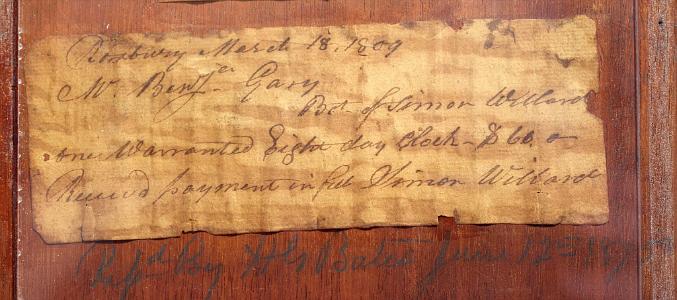 Roxbury March 18, 1809
Mr Benja Gary
Bot of Simon Willard
one Warranted Eight day Clock - $60. 0
Receivd payment in full Simon Willard
By Bates June 12